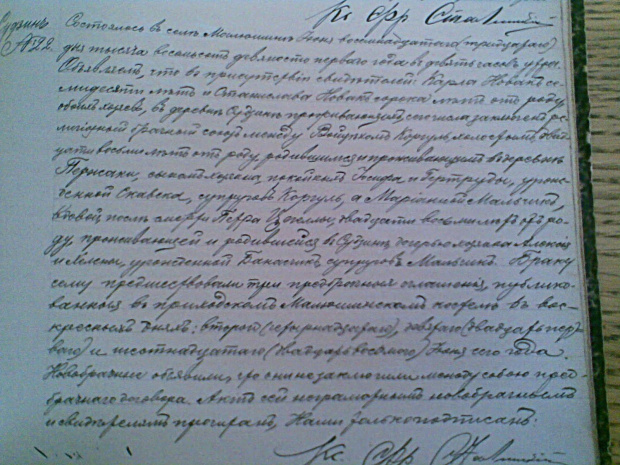 Кс. Ефр
Судзинъ №22. Состоялось въ селѣ Малюшинѣ Іюня восемнадцатаго (тридцатаго)
дня тысяча восемьсотъ девяносто перваго года въ девять часовъ утра.
Объявляемъ, что въ присутствіи свидѣтелей: Карла Новакъ се-
мидесяти лѣтъ и Станислава Новакъ сорока лѣтъ отъ роду
въ деревнѣ Судзинъ проживающихъ, сего числа заключенъ ре-
лигіозный брачный союзъ между Войцѣхомъ Коргуль холостымъ, двад-
цати восьми лѣтъ отъ роду, родившимся и проживающимъ въ деревнѣ
сыномъ покойныхъ Іосифа и Гертруды, урож-
денной супруговъ Коргуль, а Маріанною Мальчикъ,
вдовой послѣ смерти Петра двадцати восьми лѣтъ отъ ро-
ду, проживающей и родившейся въ Судзинѣ, дочерью Алексѣя
и урожденной супруговъ Мальчикъ. Браку
сему предшествовали три предбрачныя оглашенія, публико-
ванныя въ приходскомъ Малюшинскомъ костелѣ въ вос-
кресныхъ дняхъ: второй (четырнадцатаго), девятаго (двадцать пер-
ваго) и шестнадцатаго (двадцать восьмаго) Іюня сего года.
Новобрачные объявили, что они не заключили между собою пред-
брачнаго договора. Актъ сей неграмотнымъ новобрачнымъ
и свидѣтелямъ прочитанъ, Нами только подписанъ.
Кс. Ефр